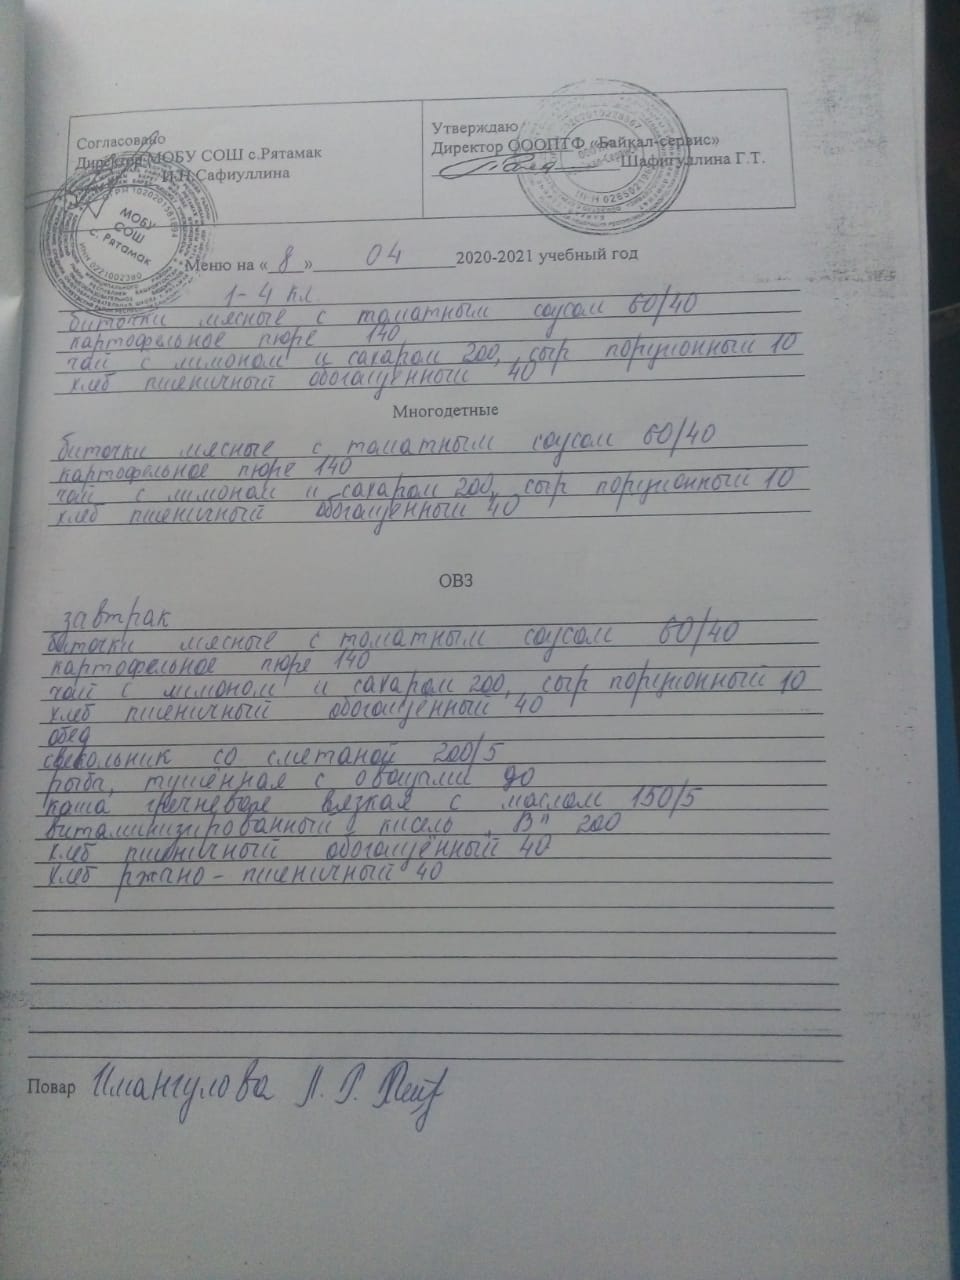 Согласовано
Директор МОБУ СОШ с.Рятамак
И.Н.Сафиуллина
Утверждаю
Директор ОООПТФ «Байкал-сервис»
Шафигуллина Г.Т.
МОБУ
СОШ
с. Рятамак
ИНН 0221002380
Меню на « 8 » 04 2020-2021 учебный год
1-4 кл.
биточки мясные с томатным соусом 60/40
картофельное пюре 140
чай с лимоном и сахаром 200, сыр порционный 10
хлеб пшеничный обогащённый 40
Многодетные
биточки мясные с томатным соусом 60/40
картофельное пюре 140
чай с лимоном и сахаром 200, сыр порционный 10
хлеб пшеничный обогащённый 40
ОВЗ
завтрак
биточки мясные с томатным соусом 60/40
картофельное пюре 140
чай с лимоном и сахаром 200, сыр порционный 10
хлеб пшеничный обогащённый 40
обед
свекольник со сметаной 200/5
рыба, тушённая с овощами 90
каша гречневая вязкая с маслом 150/5
витаминизированный кисель 200
хлеб пшеничный обогащённый 40
хлеб ржано-пшеничный 40
Повар Имангулова Л. Р.